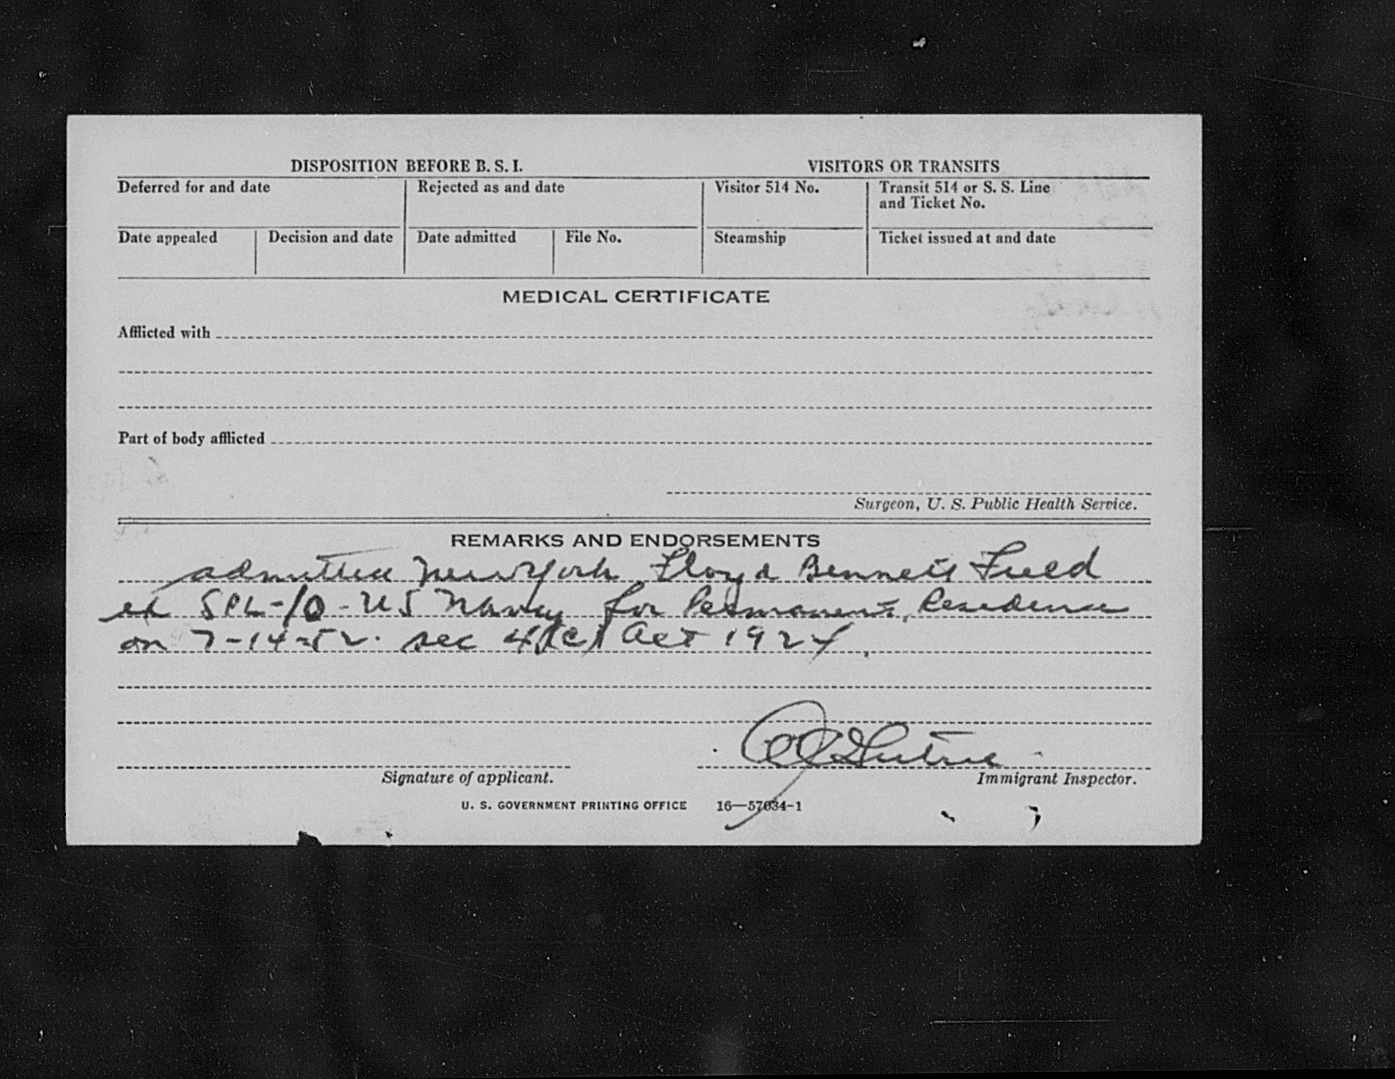 DISPOSITION BEFORE B. S. I.
VISITORS OR TRANSITS
Deferred for and date
Rejected as and date
Visitor 514 No.
Transit 514 or S. S. Line
and Ticket No.
Date appealed
Decision and date
Date admitted
File No.
Steamship
Ticket issued at and date
MEDICAL CERTIFICATE
Afflicted with
Part of body afflicted
Surgeon, U. S. Public Health Service.
REMARKS AND ENDORSEMENTS
admitted New York Floyd Bennett Field
SPL-10 - US Navy for Permanent Residence
on 7-14-52. sec 4(c) Act 1924.
Signature of applicant.
Immigrant Inspector.
U. S. GOVERNMENT PRINTING OFFICE 16—57034-1